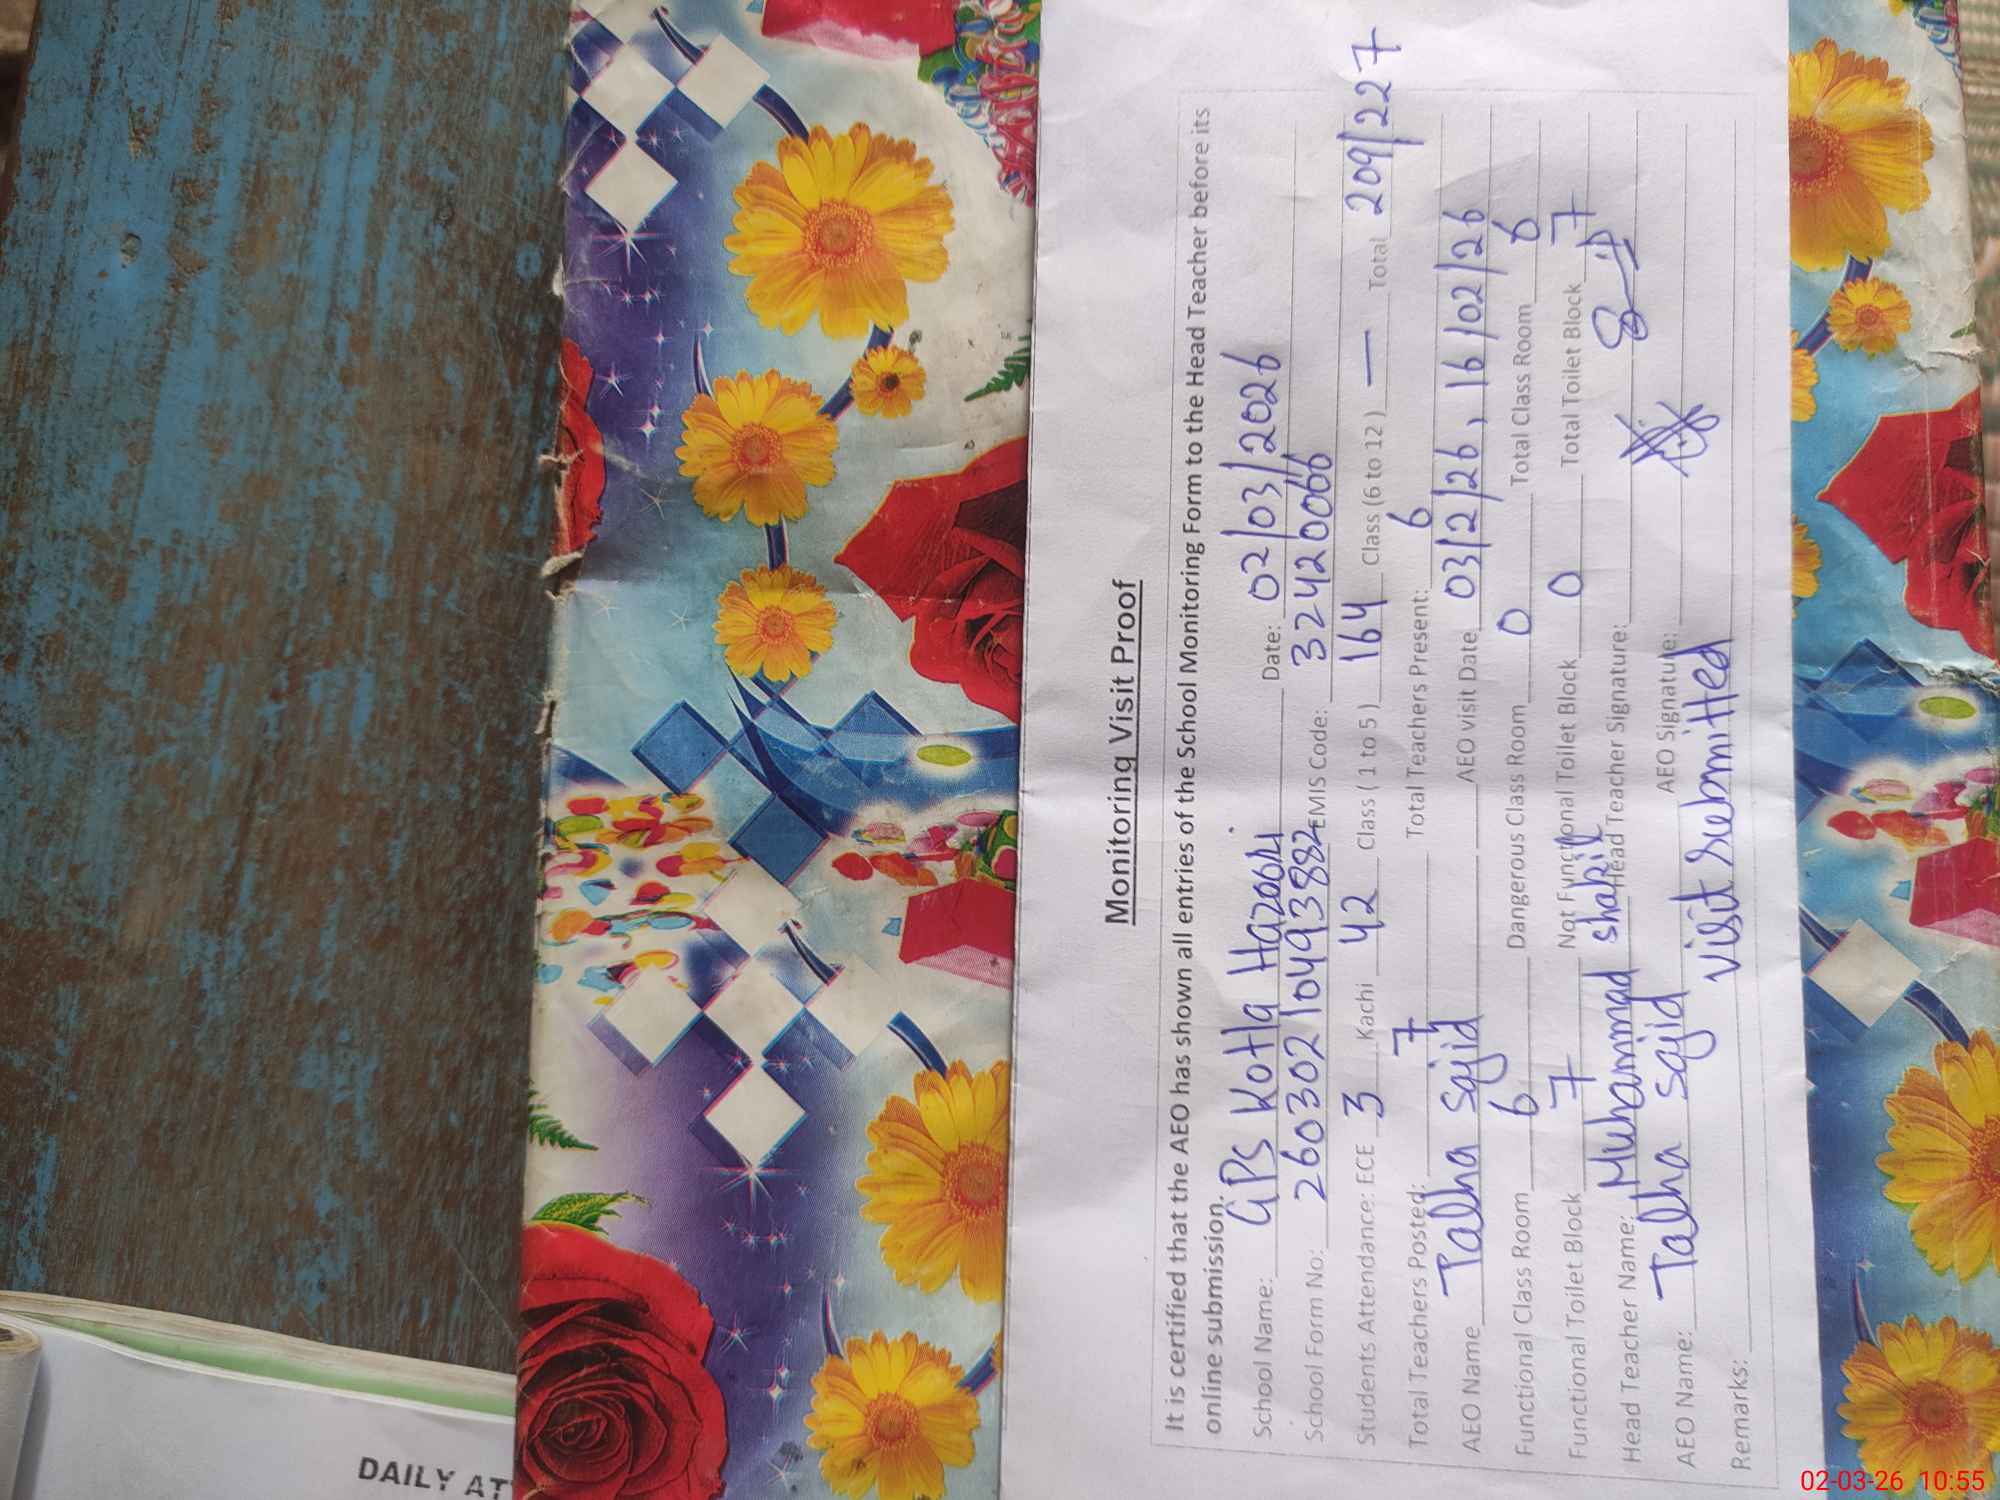 Monitoring Visit Proof
It is certified that the AEO has shown all entries of the School Monitoring Form to the Head Teacher before its
online submission.
School Name: GPS Kotla Hazoori Date: 02/03/2026
School Form No: 26030210493882 EMIS Code: 32420066
Students Attendance: ECE 3 Kachi 42 Class ( 1 to 5 ) 164 Class (6 to 12 ) — Total 209/227
Total Teachers Posted: 7 Total Teachers Present: 6
AEO Name Talha Sajid AEO visit Date 03/2/26, 16/02/26
Functional Class Room 6 Dangerous Class Room 0 Total Class Room 6
Functional Toilet Block 7 Not Functional Toilet Block 0 Total Toilet Block 7
Head Teacher Name: Muhammad shakil Head Teacher Signature:
AEO Name: Talha Sajid AEO Signature:
Remarks: visit submitted
DAILY AT
02-03-26 10:55